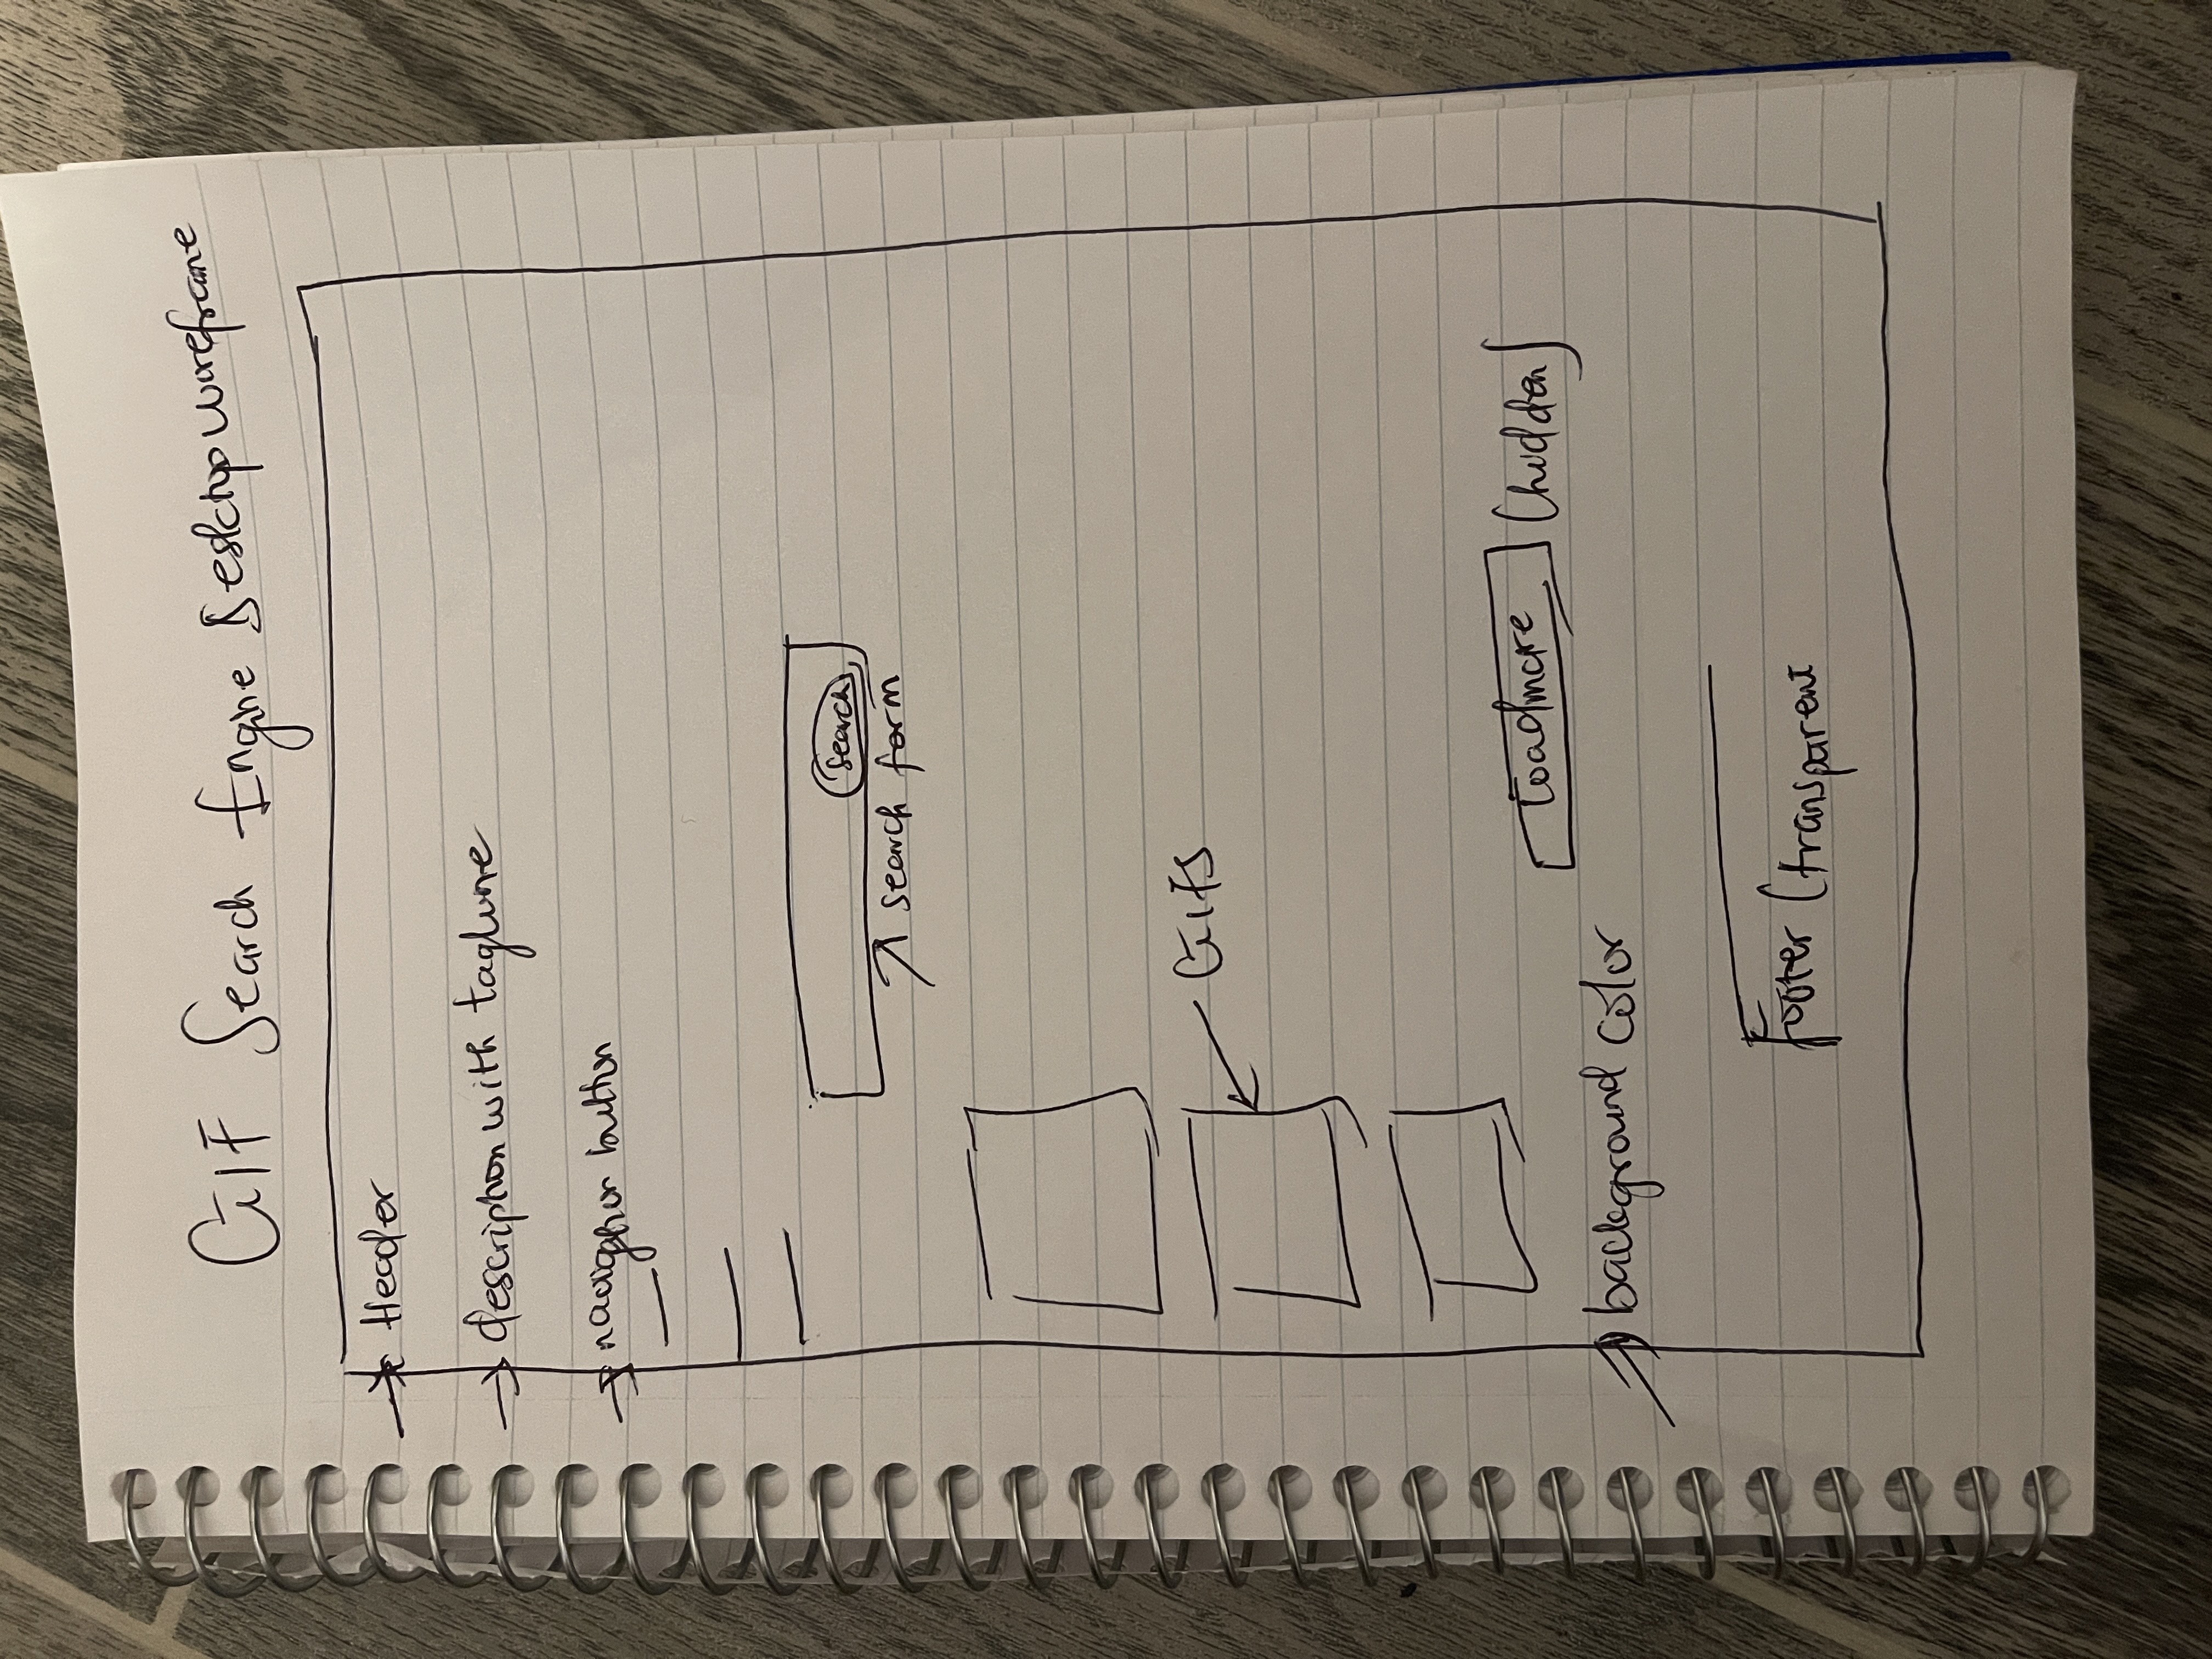 GIF Search Engine Desktop wireframe
Header
description with tagline
navigation button
Search
search form
GIFS
Loadmore (hidden)
background color
Footer (transparent